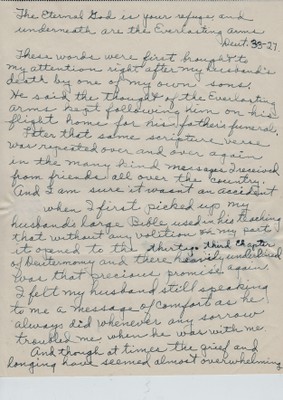 The Eternal God is your refuge and
underneath are the Everlasting arms
Deut. 33-27.
These words were first brought to
my attention right after my husband's
death by one of my own sons.
He said the thought of the Everlasting
arms kept following him on his
flight home for his father's funeral,
Later that same scripture verse
was repeated over and over again
in the many kind messages I received
from friends all over the country
And I am sure it wasn't an accident
when I first picked up my
husband's large Bible used in his teaching
that without any volition on my part
it opened to the thirty third chapter
of Deuteronomy and there heavily underlined
was that precious promise again.
I felt my husband still speaking
to me a message of comfort as he
always did whenever any sorrow
troubled me when he was with me
And though at times the grief and
longing have seemed almost overwhelming